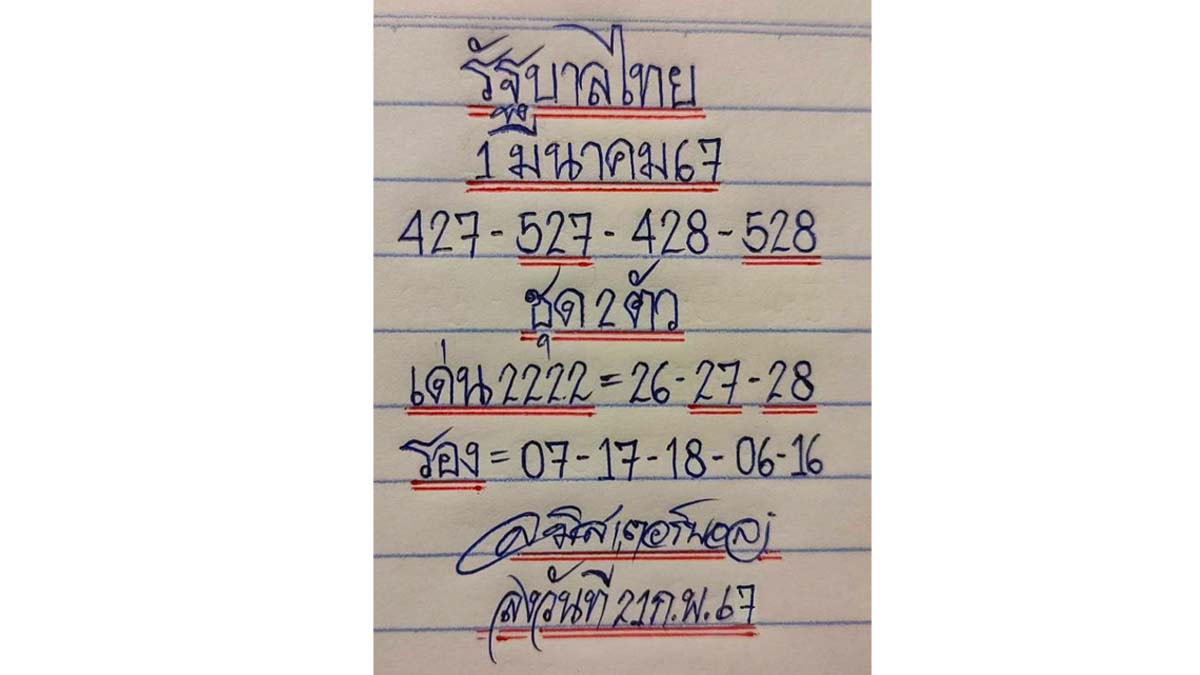 รัฐบาลไทย
1 มีนาคม 67
427 - 527 - 428 - 528
ชุด 2 ตัว
เด่น 2222 = 26 - 27 - 28
รอง = 07 - 17 - 18 - 06 - 16
ลงวันที่ 21 ก.พ. 67